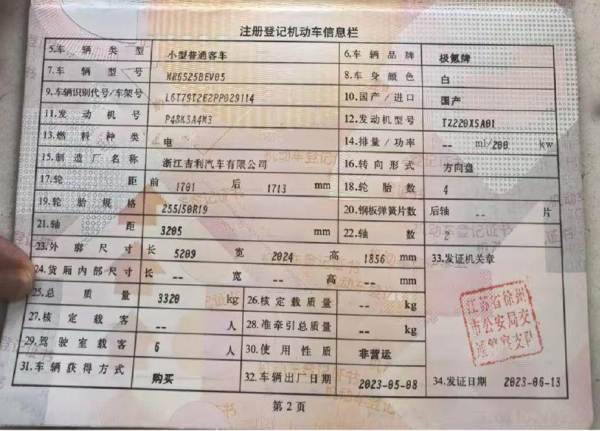 注册登记机动车信息栏
5.车辆类型 小型普通客车 6.车辆品牌 极氪牌
7.车辆型号 MR6525BEV05 8.车身颜色 白
9.车辆识别代号/车架号 L6T79T2E2PP029114 10.国产/进口 国产
11.发动机号 P48K5A4M3 12.发动机型号 TZ220XSA01
13.燃料种类 电 14.排量/功率 -- ml/200 kw
15.制造厂名称 浙江吉利汽车有限公司 16.转向形式 方向盘
17.轮距 前 1701 后 1713 mm 18.轮胎数 4
19.轮胎规格 255/50R19 20.钢板弹簧片数 后轴 -- 片
21.轴距 3205 mm 22.轴数 2
23.外廓尺寸 长 5209 宽 2024 高 1856 mm 33.发证机关章
24.货厢内部尺寸 长 -- 宽 -- 高 -- mm
25.总质量 3320 kg 26.核定载质量 -- kg
27.核定载客 人 28.准牵引总质量 -- kg
江苏省徐州
市公安局交
通警察支队
29.驾驶室载客 人 30.使用性质 非营运
31.车辆获得方式 购买 32.车辆出厂日期 2023-05-08 34.发证日期 2023-06-13
第2页